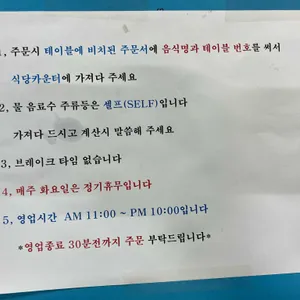 1, 주문시 테이블에 비치된 주문서에 음식명과 테이블 번호를 써서
식당카운터에 가져다 주세요
2, 물 음료수 주류등은 셀프(SELF)입니다
가져다 드시고 계산시 말씀해 주세요
3, 브레이크 타임 없습니다
4, 매주 화요일은 정기휴무입니다
5, 영업시간 AM 11:00 ~ PM 10:00입니다
*영업종료 30분전까지 주문 부탁드립니다*